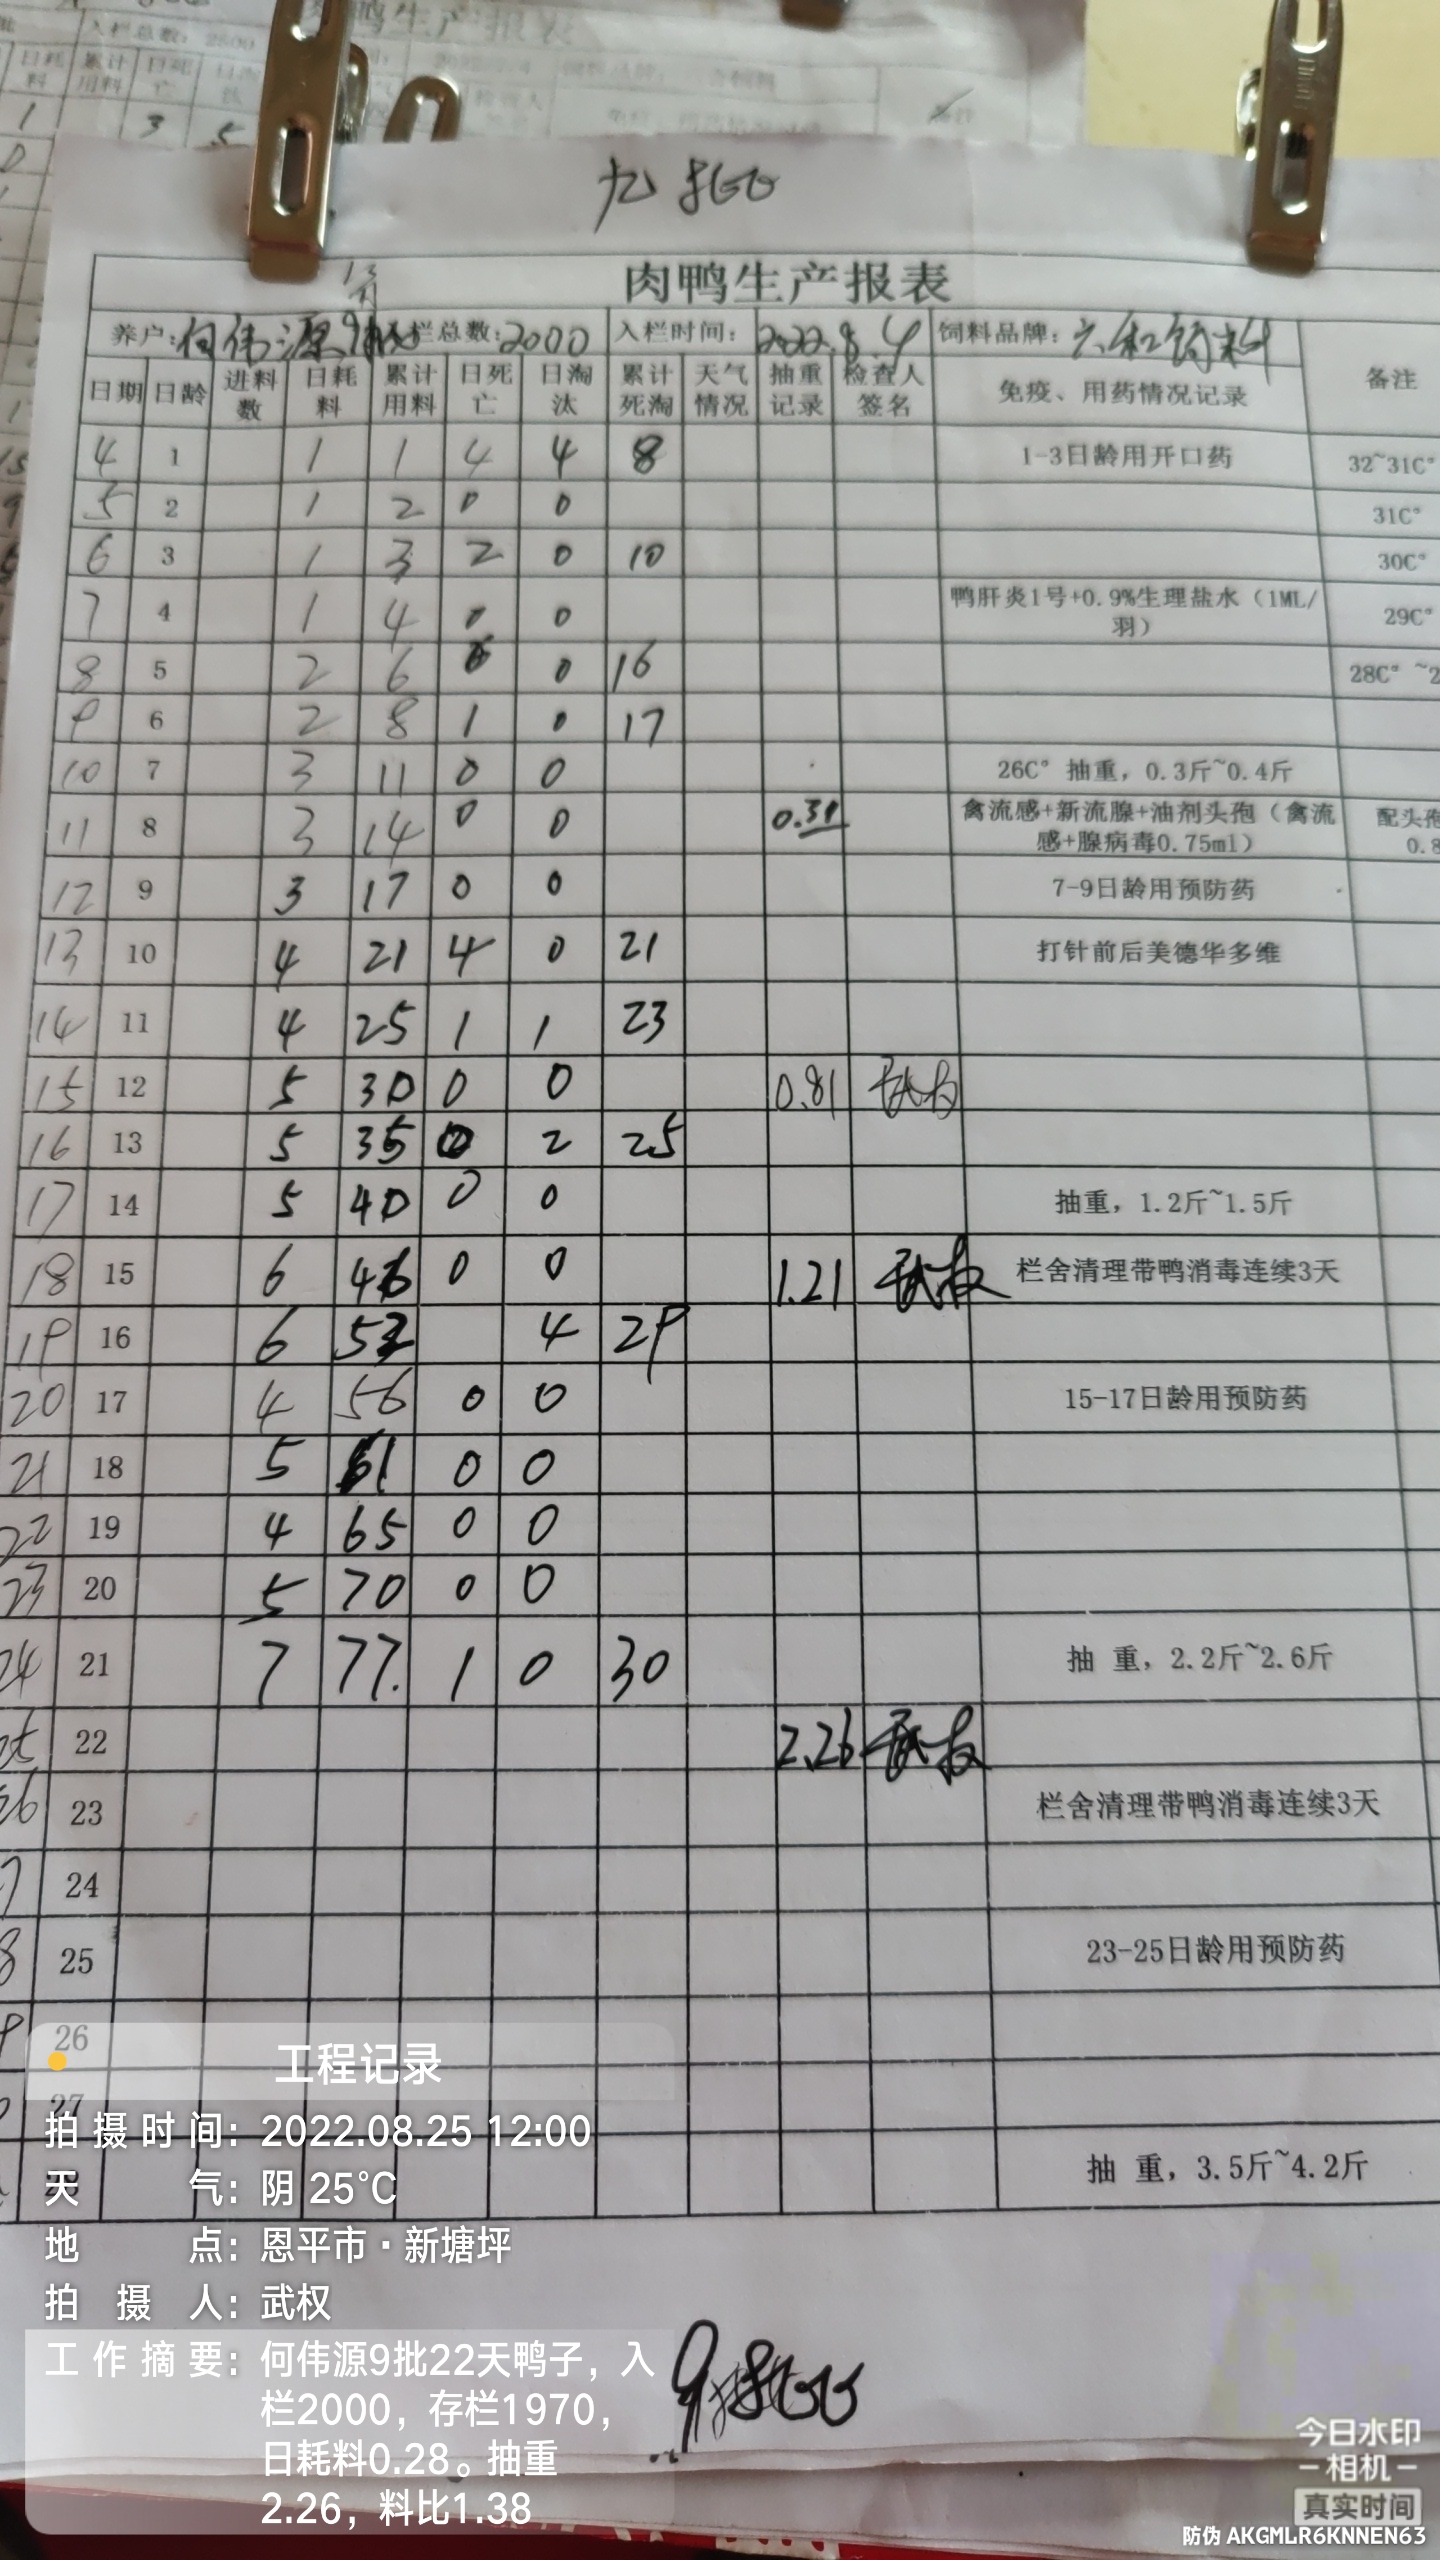 九批
肉鸭生产报表
养户:何伟源9批 入栏总数:2000 入栏时间: 2022.8.4 饲料品牌:六和饲料
日期 日龄 进料数 日耗料 累计用料 日死亡 日淘汰 累计死淘 天气情况 抽重记录 检查人签名 免疫、用药情况记录 备注
4 1 1 1 4 4 8 1-3日龄用开口药 32~31C°
5 2 1 2 0 0 31C°
6 3 1 3 2 0 10 30C°
7 4 1 4 0 0 鸭肝炎1号+0.9%生理盐水（1ML/羽） 29C°
8 5 2 6 6 0 16 28C° ~2
9 6 2 8 1 0 17
10 7 3 11 0 0 26C° 抽重，0.3斤~0.4斤
11 8 3 14 0 0 0.31 禽流感+新流腺+油剂头孢（禽流感+腺病毒0.75ml） 配头孢 0.8
12 9 3 17 0 0 7-9日龄用预防药
13 10 4 21 4 0 21 打针前后美德华多维
14 11 4 25 1 1 23
15 12 5 30 0 0 0.81 武权
16 13 5 35 0 2 25
17 14 5 40 0 0 抽重，1.2斤~1.5斤
18 15 6 46 0 0 1.21 武权 栏舍清理带鸭消毒连续3天
19 16 6 52 4 29
20 17 4 56 0 0 15-17日龄用预防药
21 18 5 61 0 0
22 19 4 65 0 0
23 20 5 70 0 0
24 21 7 77. 1 0 30 抽 重，2.2斤~2.6斤
25 22 2.26 武权
26 23 栏舍清理带鸭消毒连续3天
7 24
8 25 23-25日龄用预防药
9 26
27
抽 重，3.5斤~4.2斤
工程记录
拍摄时间：2022.08.25 12:00
天气：阴 25℃
地点：恩平市·新塘坪
拍摄人：武权
工作摘要：何伟源9批22天鸭子，入
栏2000，存栏1970，
日耗料0.28。抽重
2.26，料比1.38
9批
今日水印
相机
真实时间
防伪 AKGMLR6KNNEN63